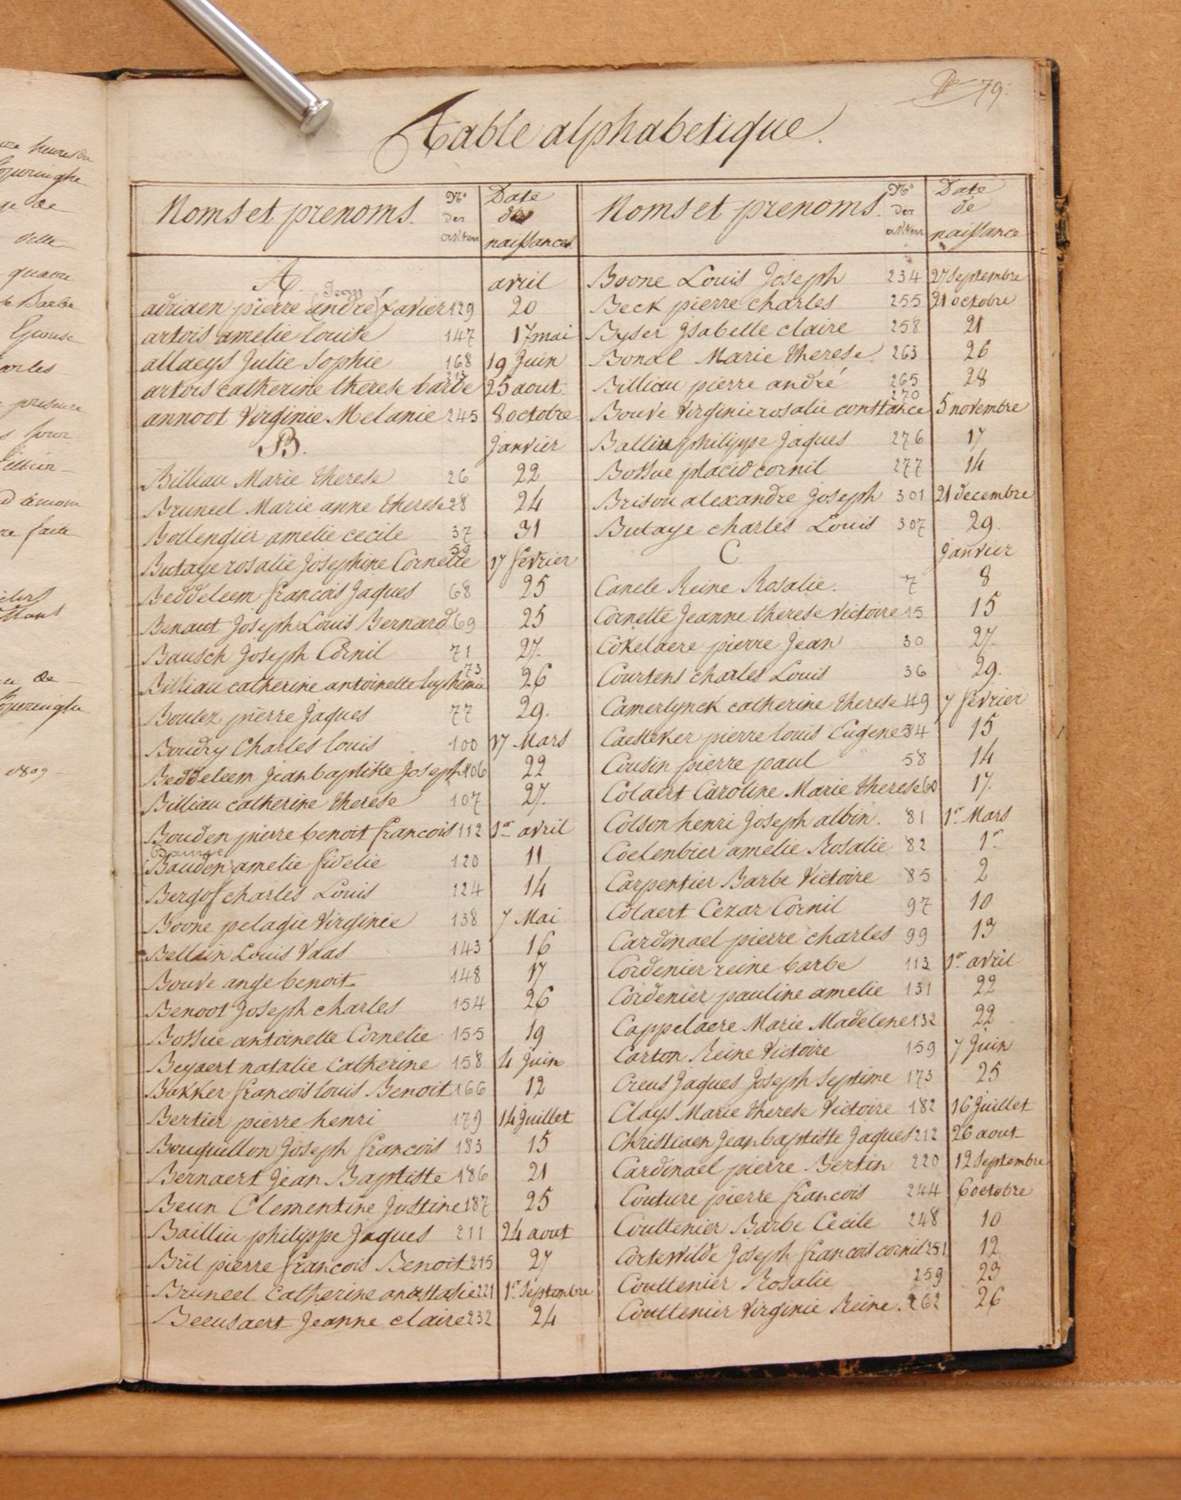 79.
Table alphabetique.
Noms et prenoms.
Nos des actes
Date des naissances
Noms et prenoms.
Nos des actes
Date de naissance
A avril
adriaen pierre andré Xavier 129 20
artois amelie louise 147 17 mai
allaeys Julie Sophie 168 19 Juin
artois catherine therese barbe 25 aout
annoot Virginie Melanie 245 8 octobre
B. Janvier
Billiau Marie therese 26 22
Bruneel Marie anne therese 28 24
Bollengier amelie cecile 37 31
Butaye rosalie Josephine Cornelie 59 17 fevrier
Beddeleem francois Jaques 68 25
Benaut Joseph Louis Bernard 69 25
Bausch Joseph Cornil 71 27.
Billiau catherine antoinette 73 26
Boutez pierre Jaques 77 29.
Boudry Charles louis 100 17 Mars
Beddeleem Jean baptiste Joseph 106 22
Billiau catherine therese 107 27.
Bouden pierre benoit francois 112 1er avril
Bauden amelie fidelie 120 11
Bergof charles Louis 124 14
Boone pelagie Virginie 138 7 Mai
Bellain Louis Vaas 143 16
Bouve ange benoit 148 17
Benoot Joseph charles 154 26
Bossue antoinette Cornelie 155 19
Beyaert natalie catherine 158 4 Juin
Bakker francois louis Benoit 166 12
Bertier pierre henri 179 14 Juillet
Bouquillon Joseph francois 183 15
Bernaert Jean Baptiste 186 21
Beun Clementine Justine 187 25
Bailliu philippe Jaques 211 24 aout
Bril pierre francois Benoit 215 27
Bruneel Catherine anastasie 221 1er Septembre
Beeusaert Jeanne claire 232 24
Boone Louis Joseph 234 27 Septembre
Beck pierre charles 255 21 octobre
Byser Isabelle claire 258 21
Bonal Marie therese 263 26
Billiau pierre andré 265 28
Bouve Virginie rosalie constance 270 5 novembre
Balliu philippe Jaques 276 17
Bossue placid cornil 277 14
Brisou alexandre Joseph 301 21 decembre
Butaye charles Louis 307 29.
C Janvier
Canele Reine Rosalie. 7 8
Cornette Jeanne therese Victoire 15 15
Cokelaere pierre Jean 30 27.
Courtens charles Louis 36 29.
Camerlynck catherine therese 49 7 fevrier
Caesteker pierre louis Eugene 54 15
Cousin pierre paul 58 14
Colaert Caroline Marie therese 60 17.
Colson henri Joseph albin. 81 1er Mars
Coelenbier amelie Rosalie 82 1er
Carpentier Barbe Victoire 85 2
Colaert Cezar Cornil 97 10
Cardinael pierre charles 99 13
Cordenier reine barbe 113 1er avril
Cordenier pauline amelie 131 22
Cappelaere Marie Madelene 132 22
Carton Reine Victoire 159 7 Juin
Creus Jaques Joseph Septime 173 25
Clays Marie therese Victoire 182 16 Juillet
Christiaen Jean baptiste Jaques 212 26 aout
Cardinael pierre Bertin 220 12 Septembre
Couture pierre francois 244 6 octobre
Couttenier Barbe Cecile 248 10
Cortewilde Joseph francois cornil 251 12
Couttenier Rosalie 259 23
Couttenier Virginie Reine. 262 26